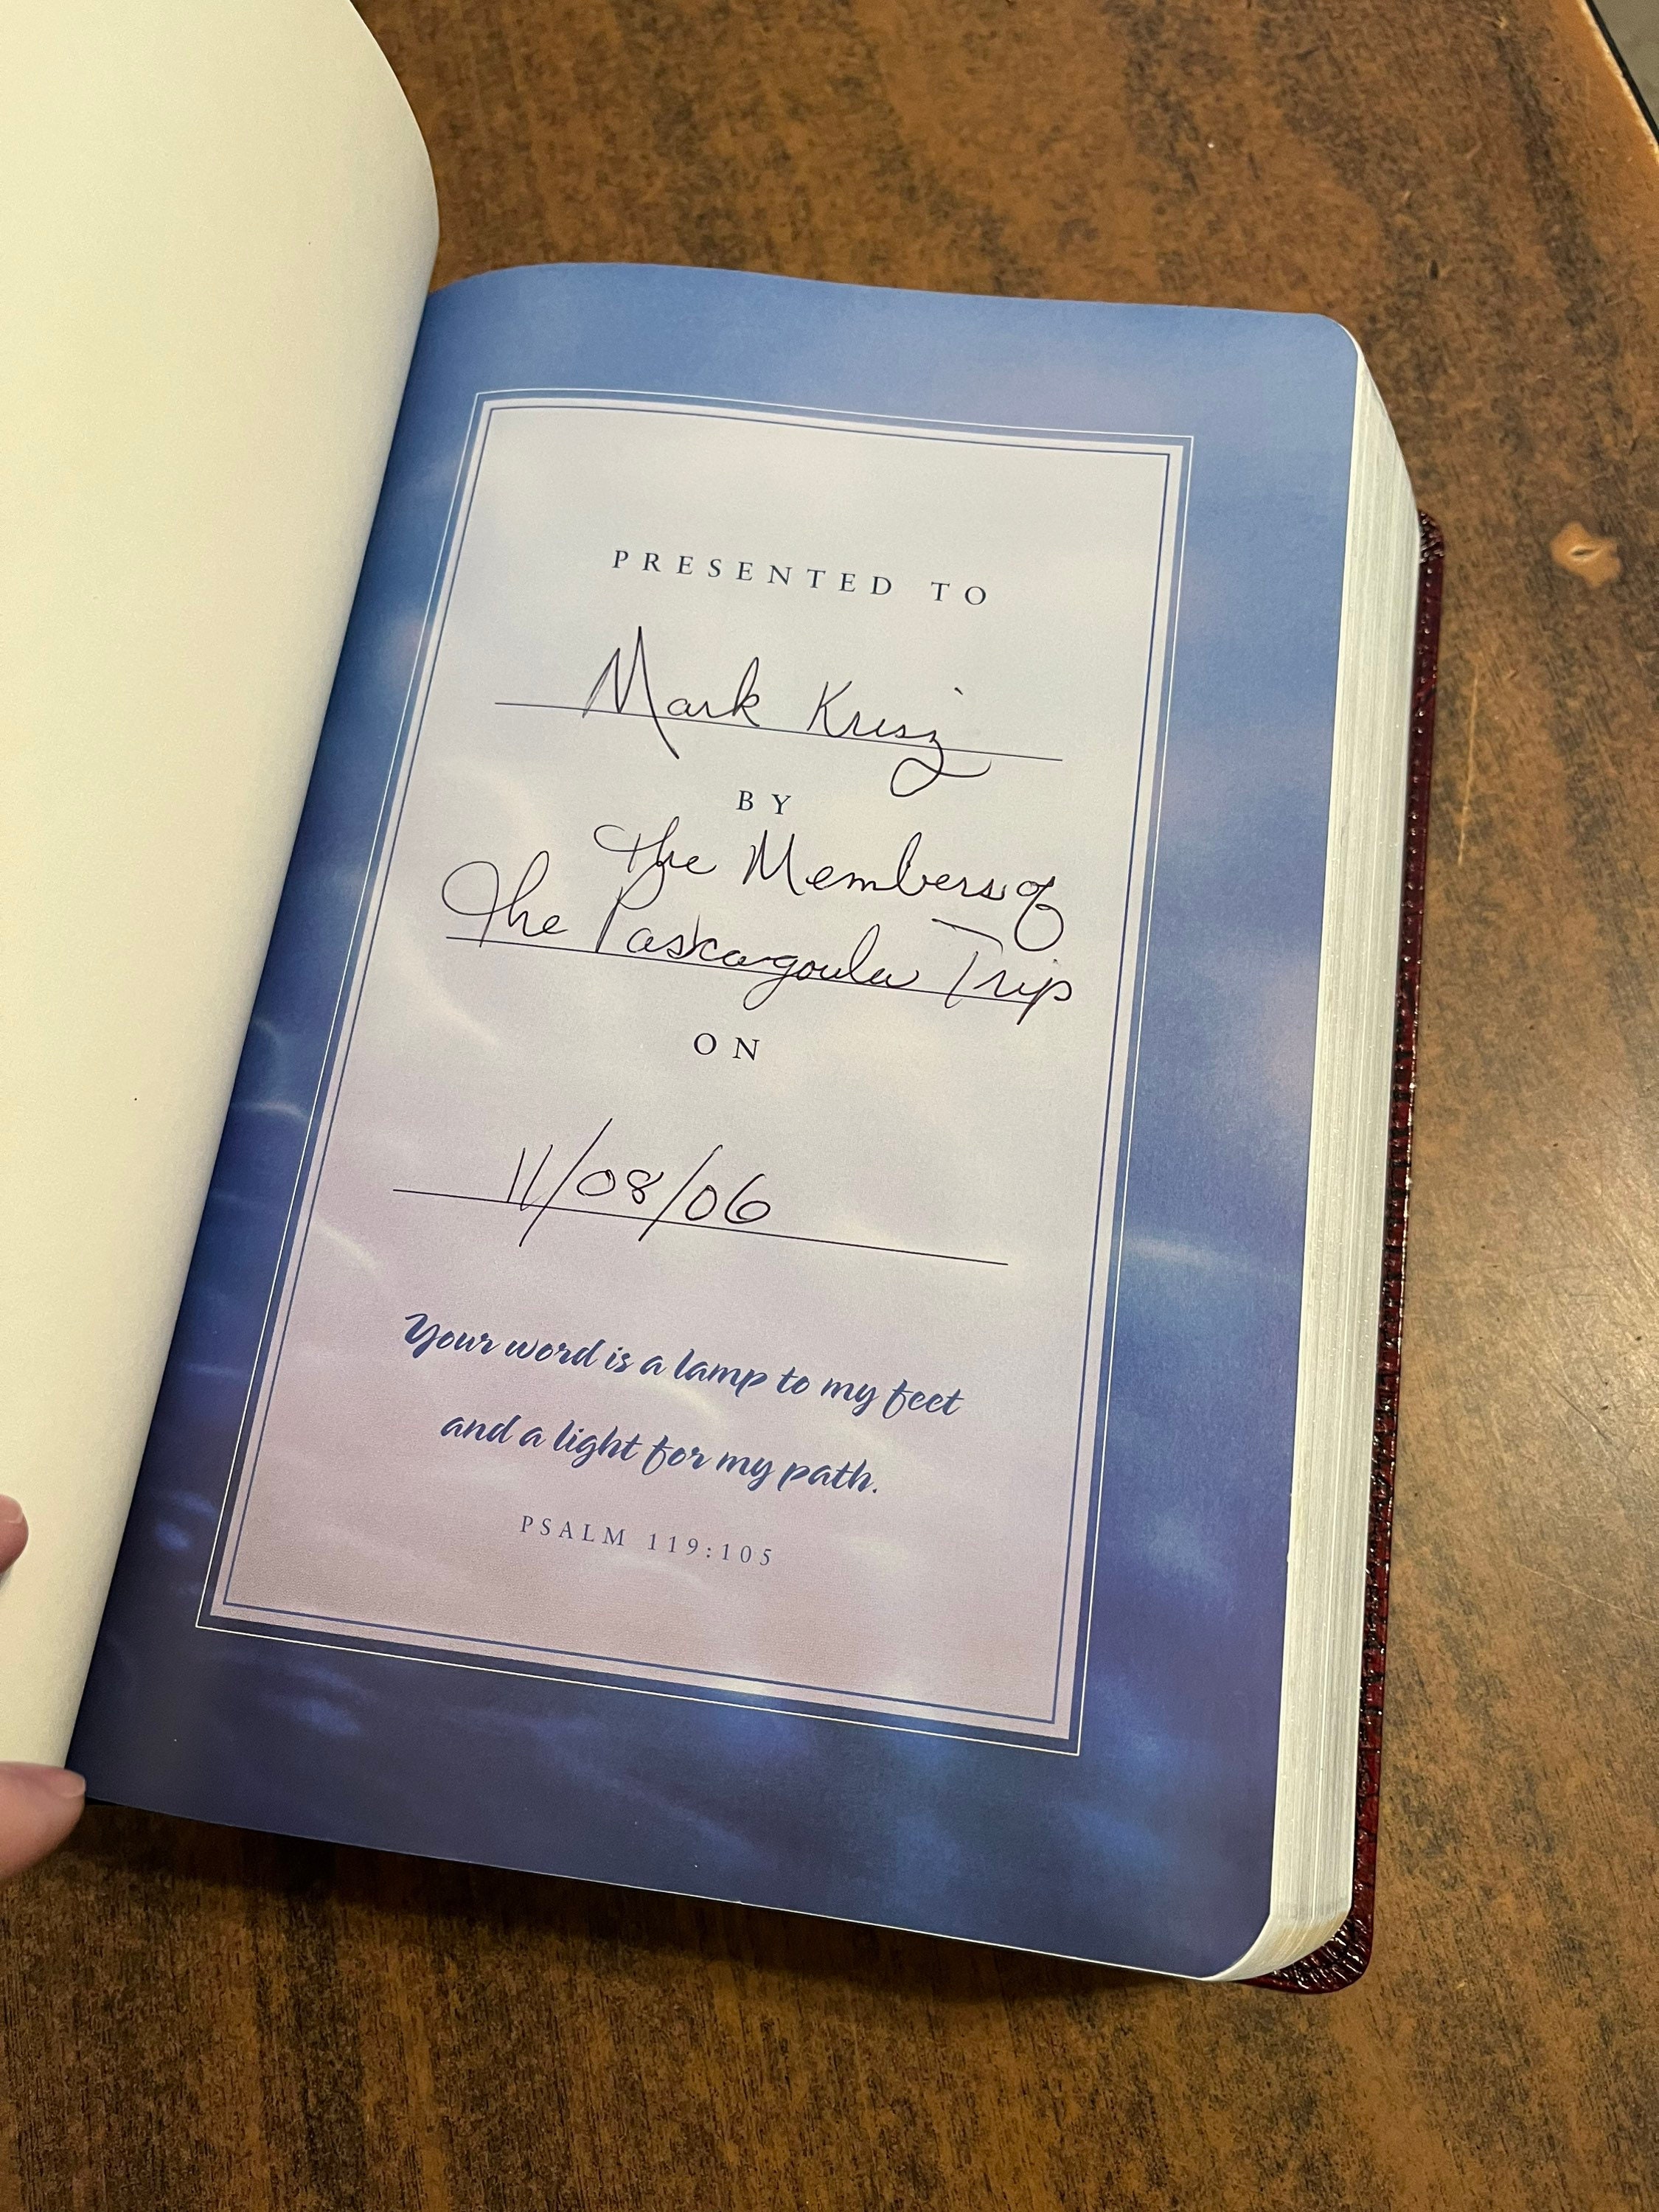 PRESENTED TO
Mark
BY
The Members of
The Pascagoula Trip
ON
11/08/06
Your word is a lamp to my feet
and a light for my path.
PSALM 119:105